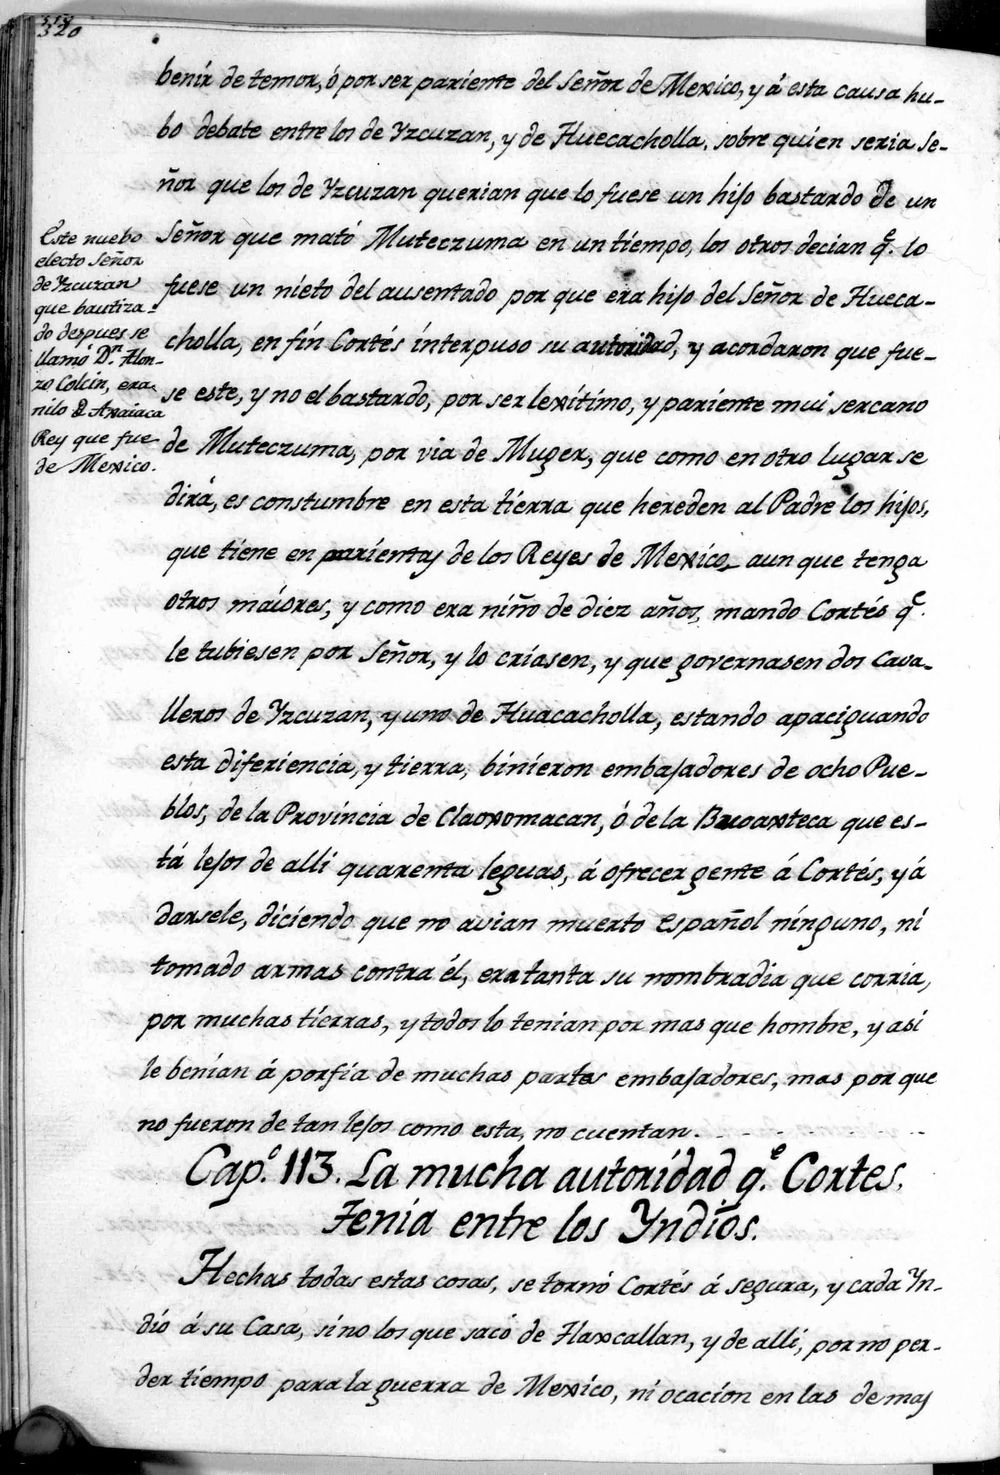 320
benir de temor, ó por ser pariente del Señor de Mexico, y á esta causa hu-
bo debate entre los de Yzcuzan, y de Huecacholla, sobre quien seria Se-
ñor que los de Yzcuzan querian que lo fuese un hijo bastardo de un
Señor que mató Muteczuma en un tiempo, los otros decian q.e lo
fuese un nieto del ausentado por que era hijo del Señor de Hueca-
cholla, en fin Cortés interpuso su autoridad, y acordaron que fue-
se este, y no el bastardo, por ser lexítimo, y pariente mui sercano
de Muteczuma, por via de Muger, que como en otro lugar se
dirá, es constumbre en esta tierra que hereden al Padre los hijos,
que tiene en parientas de los Reyes de Mexico, aun que tenga
otros maiores, y como era niño de diez años, mando Cortés q.e
le tubiesen por Señor, y lo criasen, y que governasen dos Cava-
lleros de Yzcuzan, y uno de Huacacholla, estando apaciguando
esta diferiencia, y tierra, binieron embajadores de ocho Pue-
blos, de la Provincia de Claoxomacan, ó de la que es-
tá lejos de alli quarenta leguas, á ofrecer gente á Cortés, y á
darsele, diciendo que no avian muerto Español ninguno, ni
tomado armas contra él, era tanta su nombradia que corria,
por muchas tierras, y todos lo tenian por mas que hombre, y asi
le benían á porfia de muchas partes embajadores, mas por que
no fueron de tan lejos como esta, no cuentan.
Este nuebo
electo Señor
de Yzcuzan
que bautiza-
do despues se
llamó D.n Alon-
zo Colcin, era
nito d Axaiaca
Rey que fue
de Mexico.
Cap.e 113. La mucha autoridad q.e Cortes.
Tenia entre los Yndios.
Hechas todas estas cosas, se tornó Cortés á segura, y cada Yn-
dio á su Casa, sino los que sacó de Tlaxcallan, y de alli, por no per-
der tiempo para la guerra de Mexico, ni ocacion en las de mas